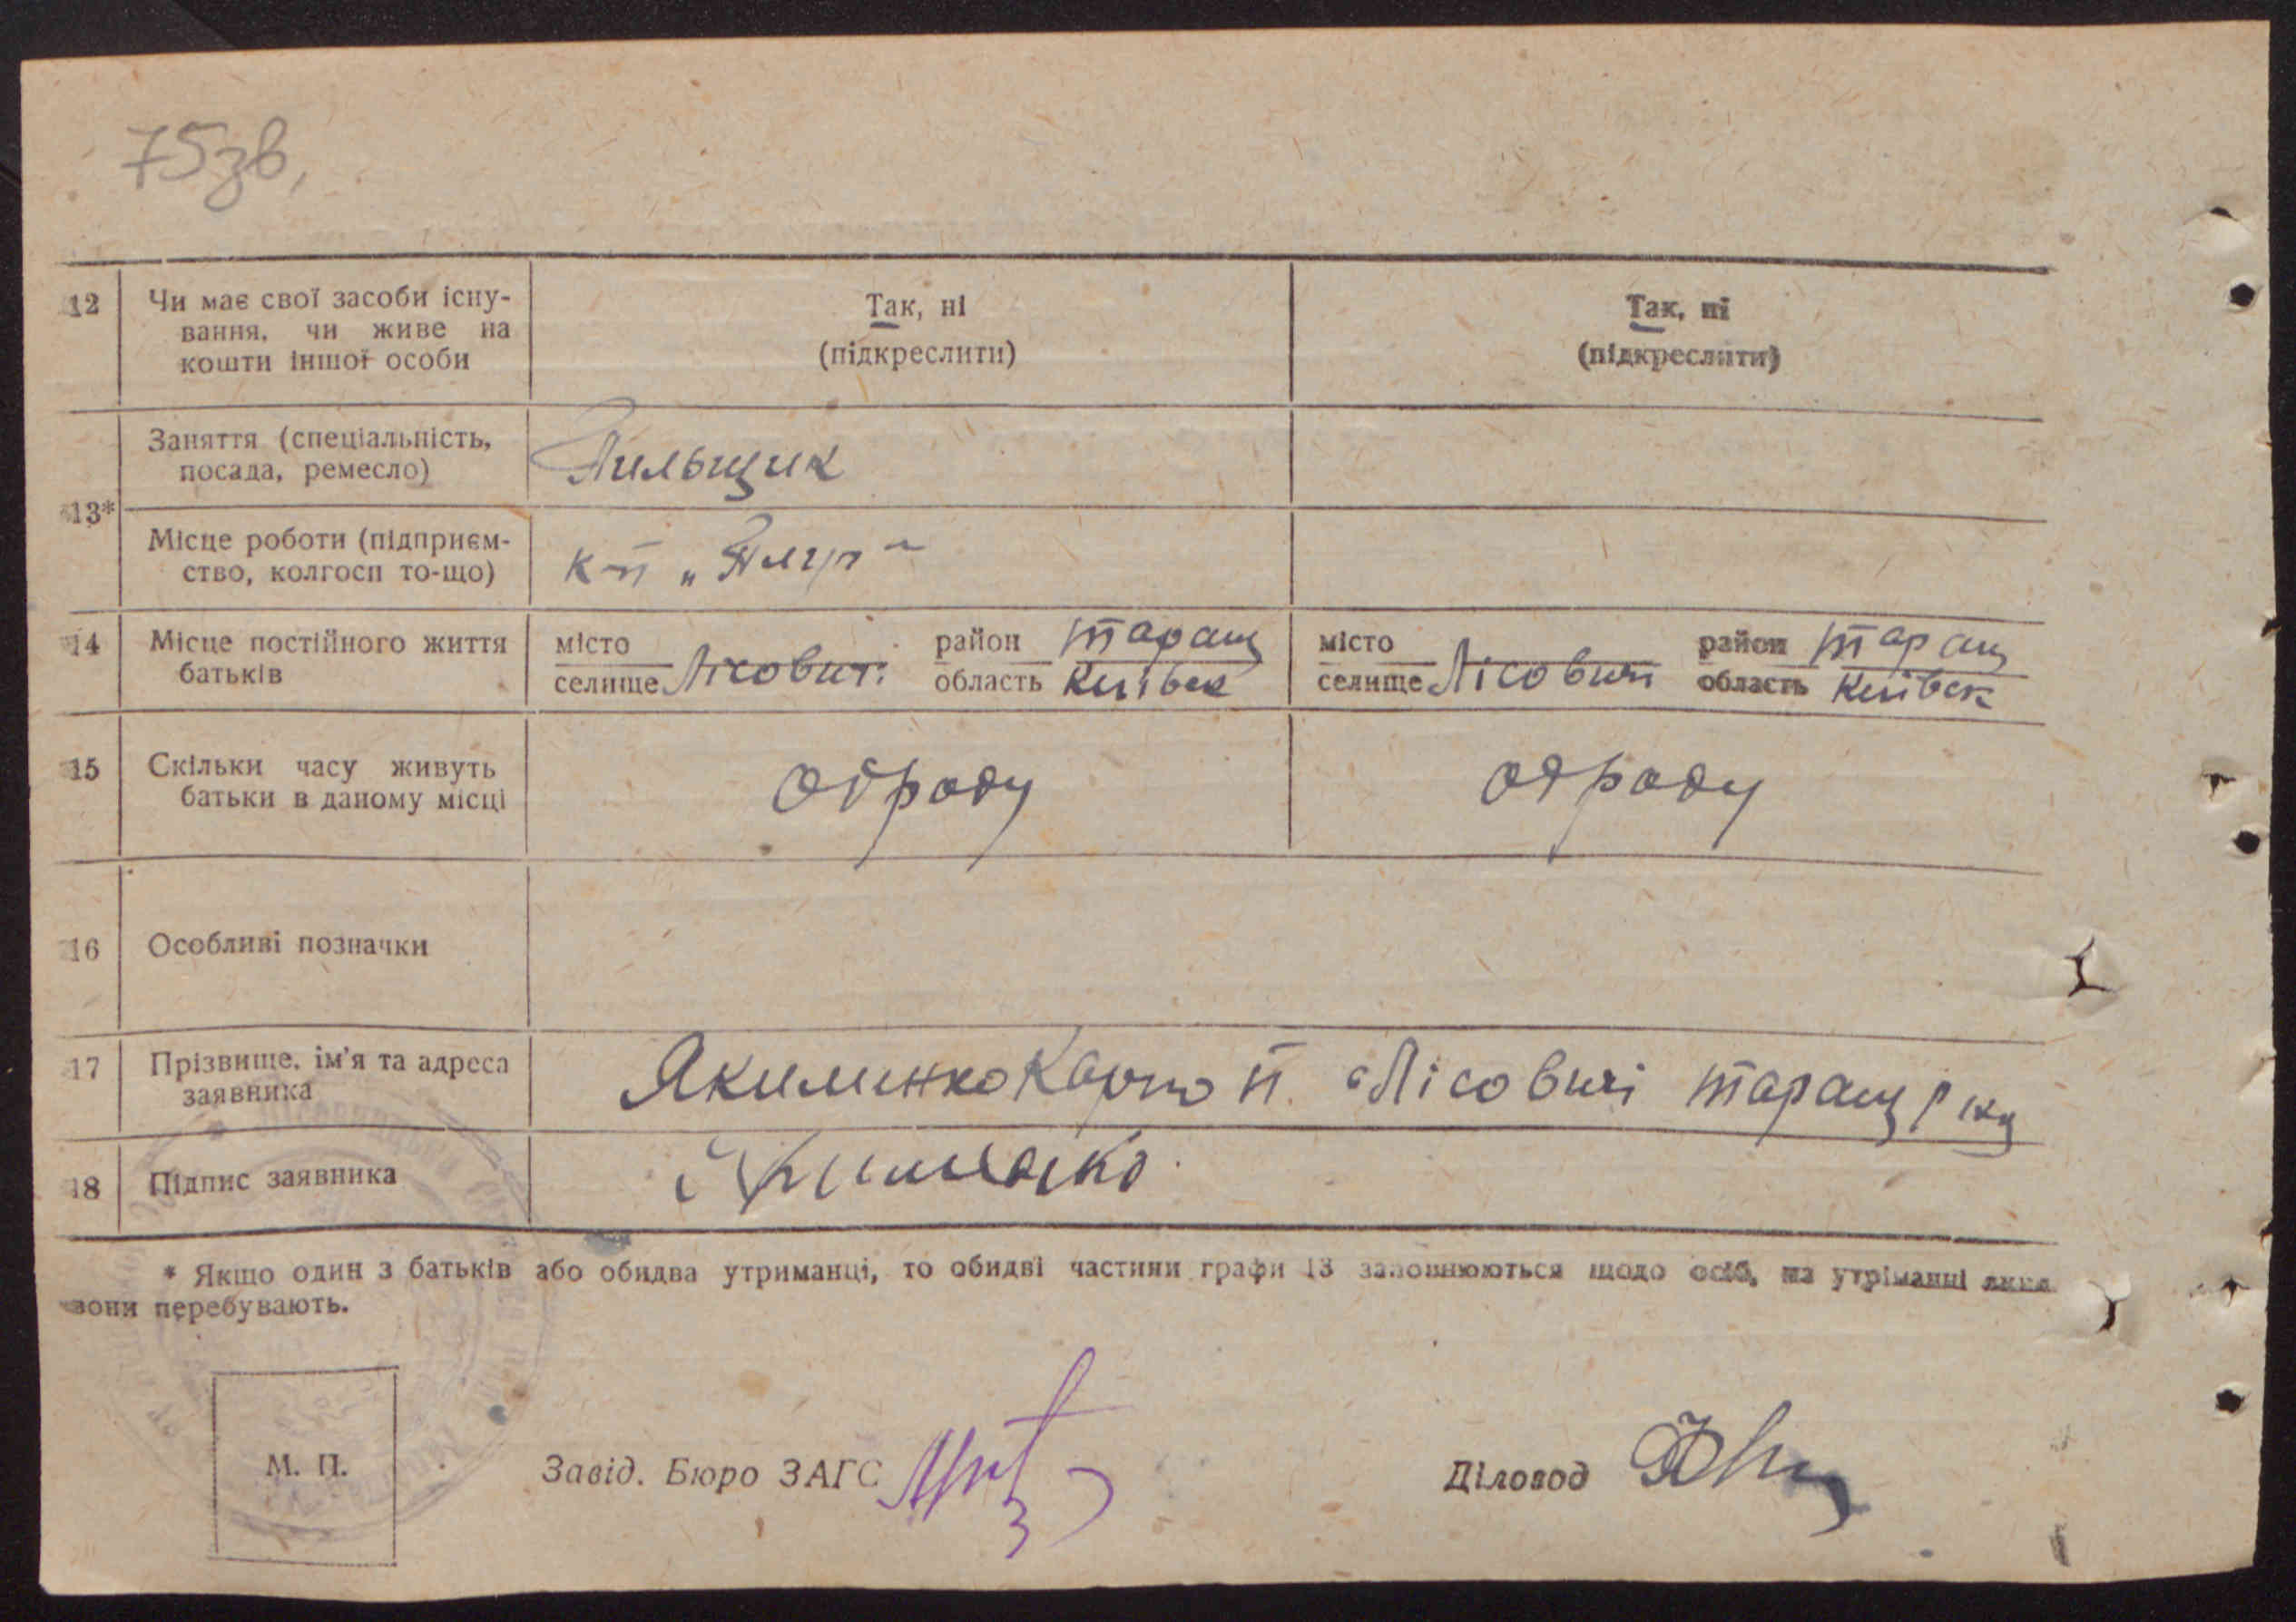 75зв,
12 Чи має свої засоби існу- Так, ні Так, ні
вання, чи живе на
кошти іншої особи (підкреслити) (підкреслити)
Заняття (спеціальність, Пильщик
посада, ремесло)
13*
Місце роботи (підприєм- к-п „
ство, колгосп то-що)
14 Місце постійного життя місто район Таращ місто район Таращ
батьків селище Лісовичі область Київск селище Лісовичі область Київск
15 Скільки часу живуть одроду одроду
батьки в даному місці
16 Особливі позначки
17 Прізвище, ім'я та адреса Якименко Карпо П. с Лісовичі Таращ р
заявника
18 Підпис заявника Якименко
* Якщо один з батьків або обидва утриманці, то обидві частини графи 13 заповнюються щодо осіб, на утріманні яких
вони перебувають.
М. П. Завід. Бюро ЗАГС Діловод